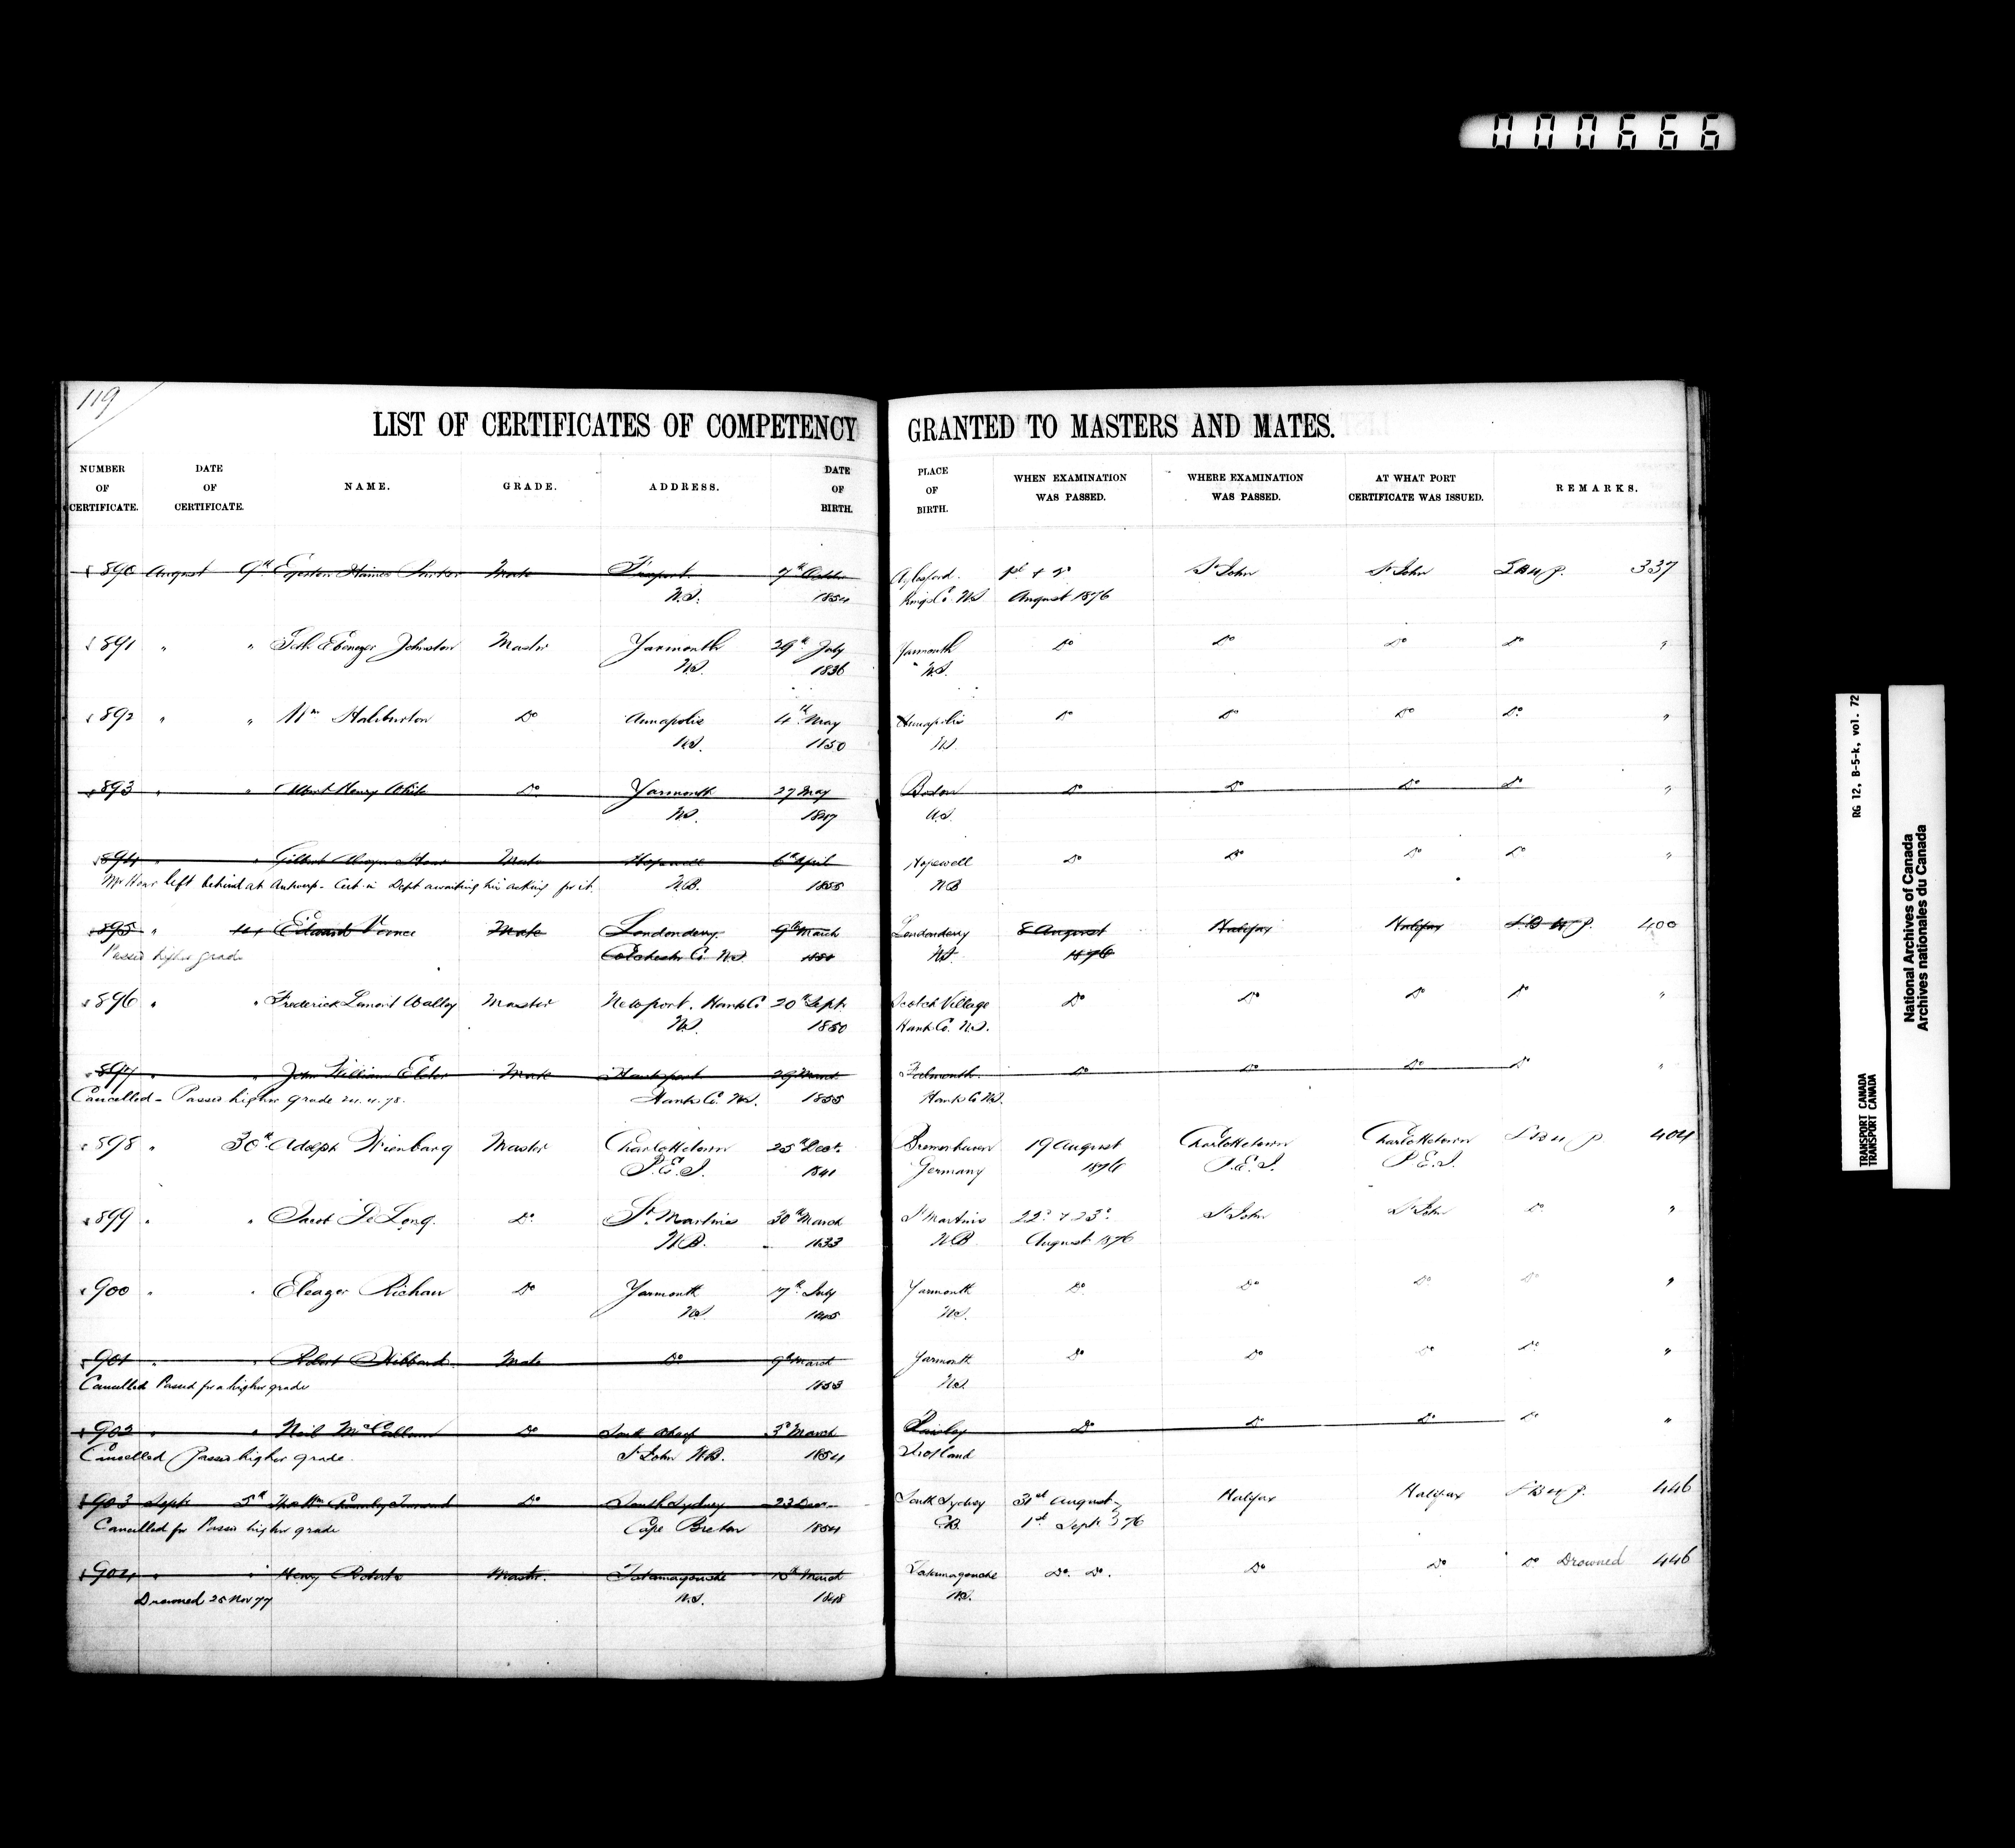 000666
119
LIST OF CERTIFICATES OF COMPETENCY GRANTED TO MASTERS AND MATES.
NUMBER OF CERTIFICATE. DATE OF CERTIFICATE. NAME. GRADE. ADDRESS. DATE OF BIRTH. PLACE OF BIRTH. WHEN EXAMINATION WAS PASSED. WHERE EXAMINATION WAS PASSED. AT WHAT PORT CERTIFICATE WAS ISSUED. REMARKS.
890 August 9th Haines Mate Freeport 7th Aylesford 1st & 2d St John St John 337
N.S. 1854 Kings Co. N.S August 1876
891 " " Ebenezer Johnston Master Yarmouth 29th July Yarmouth Do Do Do Do "
N.S. 1836 " N.S.
892 " " Wm Haliburton Do Annapolis 4th May Annapolis Do Do Do Do "
N.S. 1850 N.S.
893 " " Albert Henry White Do Yarmouth 27 May Boston Do Do Do Do "
N.S. 1847 U.S.
894 " " Gilbert Mate Hopewell 6th April Hopewell Do Do Do Do "
Mr left behind at Antwerp - Cert in Dept awaiting his asking for it. N.B. 1855 N.B
895 " Edward Vance Mate Londonderry 9th March Londonderry 8 August Halifax Halifax 400
Passed higher grade Colchester Co. N.S. N.S. 1876
896 " " Frederick Lamont Malloy Master Newport, Hants Co 20th Sept Scotch Village Do Do Do Do "
N.S. 1850 Hants Co. N.S.
897 " " John William Elder Mate Hantsport 29 March Falmouth Do Do Do Do "
Cancelled - Passed higher grade 24.4.78. Hants Co. N.S. 1855 Hants Co N.S.
898 " 30th Adolph Wienbarg Master Charlottetown 25th Decr. Bremerhaven 19 August Charlottetown Charlottetown 404
P.E.I. 1841 Germany 1876 P.E.I. P.E.I.
899 " " Jacob De Long. Do St. Martins 30th March St Martins 22d & 23d St John St John Do "
N.B. 1833 N.B August 1876
900 " " Eleazer Richan Do Yarmouth 17th July Yarmouth Do Do Do Do "
N.S. 1845 N.S.
901 " " Robert Hibbard Mate Do 9th March Yarmouth Do Do Do Do "
Cancelled Passed for a higher grade 1853 N.S.
902 " " Neil McCallum Do South Wharf 3d March Paisley Do Do Do Do "
Cancelled Passed higher grade. St John N.B. 1854 Scotland
903 Sept 5th Thos Wm Do South Sydney 23 Decr South Sydney 31st August Halifax Halifax 446
Cancelled for Passed higher grade Cape Breton 1854 C.B. 1st Sept 76
904 " " Henry Roberts Master. Tatamagouche March Tatamagouche Do. Do. Do Do Do Drowned 446
Drowned 25 Nov 77 N.S. 1848 N.S.
RG 12, B-5-k, vol. 72
TRANSPORT CANADA
TRANSPORT CANADA
National Archives of Canada
Archives nationales du Canada